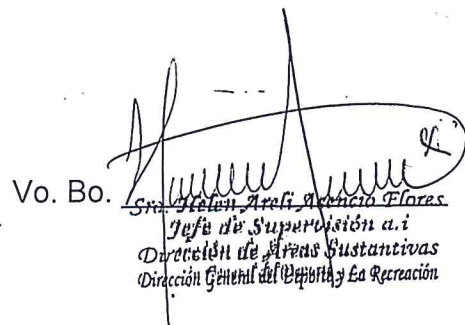 Vo. Bo.
Sra. Helen Areli Asencio Flores
Jefe de Supervisión a.i
Dirección de Áreas Sustantivas
Dirección General del Deporte y La Recreación